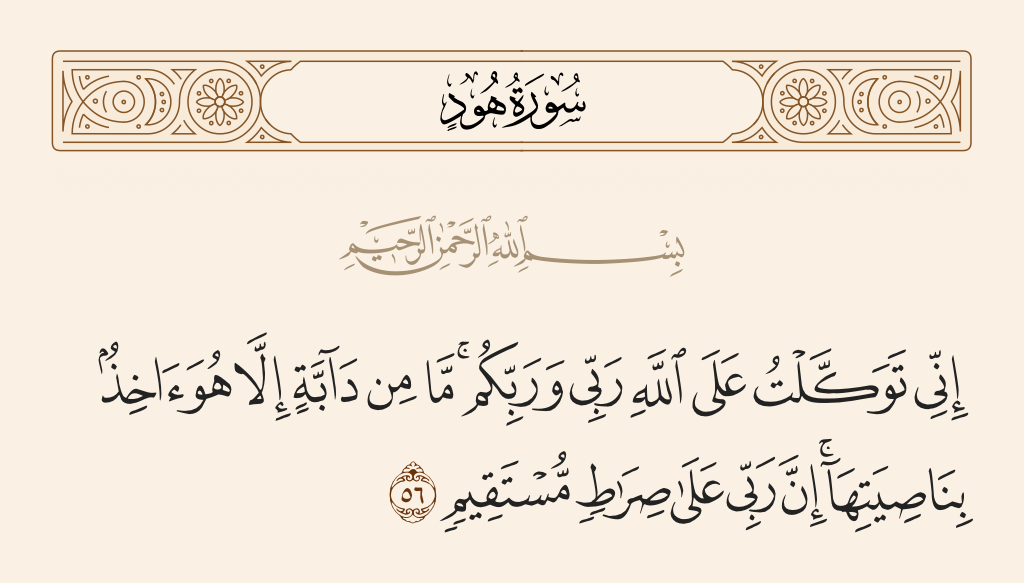 سُورَةُ هُودٍ
بِسْمِ ٱللَّهِ ٱلرَّحْمَٰنِ ٱلرَّحِيمِ
إِنِّي تَوَكَّلْتُ عَلَى ٱللَّهِ رَبِّي وَرَبِّكُم ۚ مَّا مِن دَآبَّةٍ إِلَّا هُوَ ءَاخِذٌۢ
بِنَاصِيَتِهَآ ۚ إِنَّ رَبِّي عَلَىٰ صِرَٰطٍ مُّسْتَقِيمٍ ٥٦